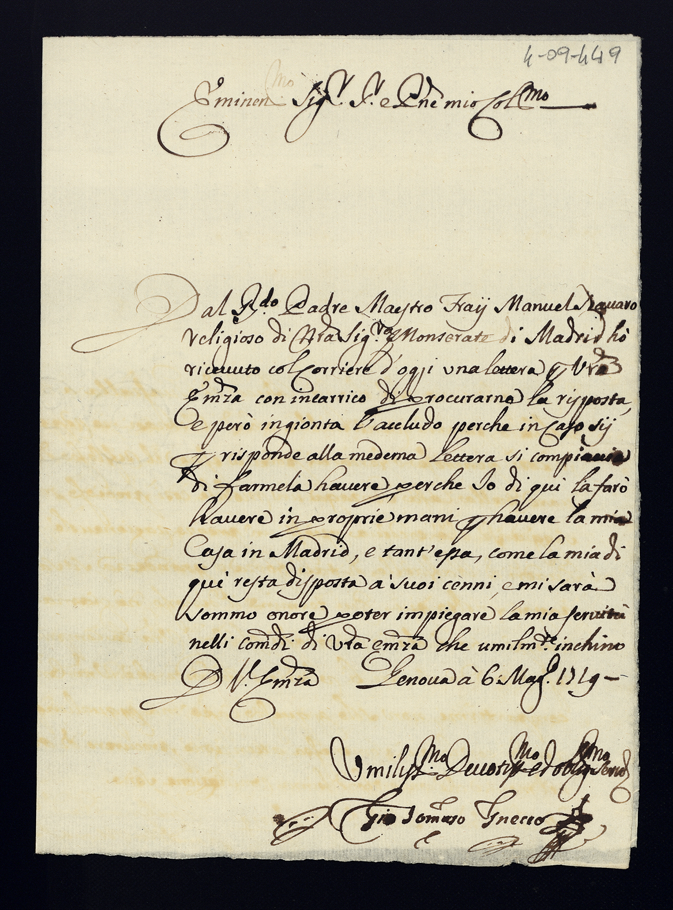 4-09-449
Eminen.mo Sig.r S.r e Pñe mio Col.mo
Dal R.do Padre Maestro Fray Manuel Navaro
religioso di Nrã Sig.ra Monserate di Madrid hò
ricevuto col Corriere d'oggi una lettera p Vrã
Emzã con incarrico di procurarne la risposta,
e però ingionta l'accludo perche in Caso sij
p risponde alla medema lettera si compiaccia
di farmela havere perche Io di qui la farò
havere in proprie mani p havere la mia
Casa in Madrid, e tant'essa, come la mia di
qui resta disposta a' suoi cenni, e mi sarà
sommo onore poter impiegare la mia servitù
nelli comdi. di Vrã emzã che umilm.te inchino
D V. Emzã Genova à 6. Mag.o 1719
Umiliss.mo Devotiss.mo et oblig.mo Serv.
Gio Tomaso Gnecco